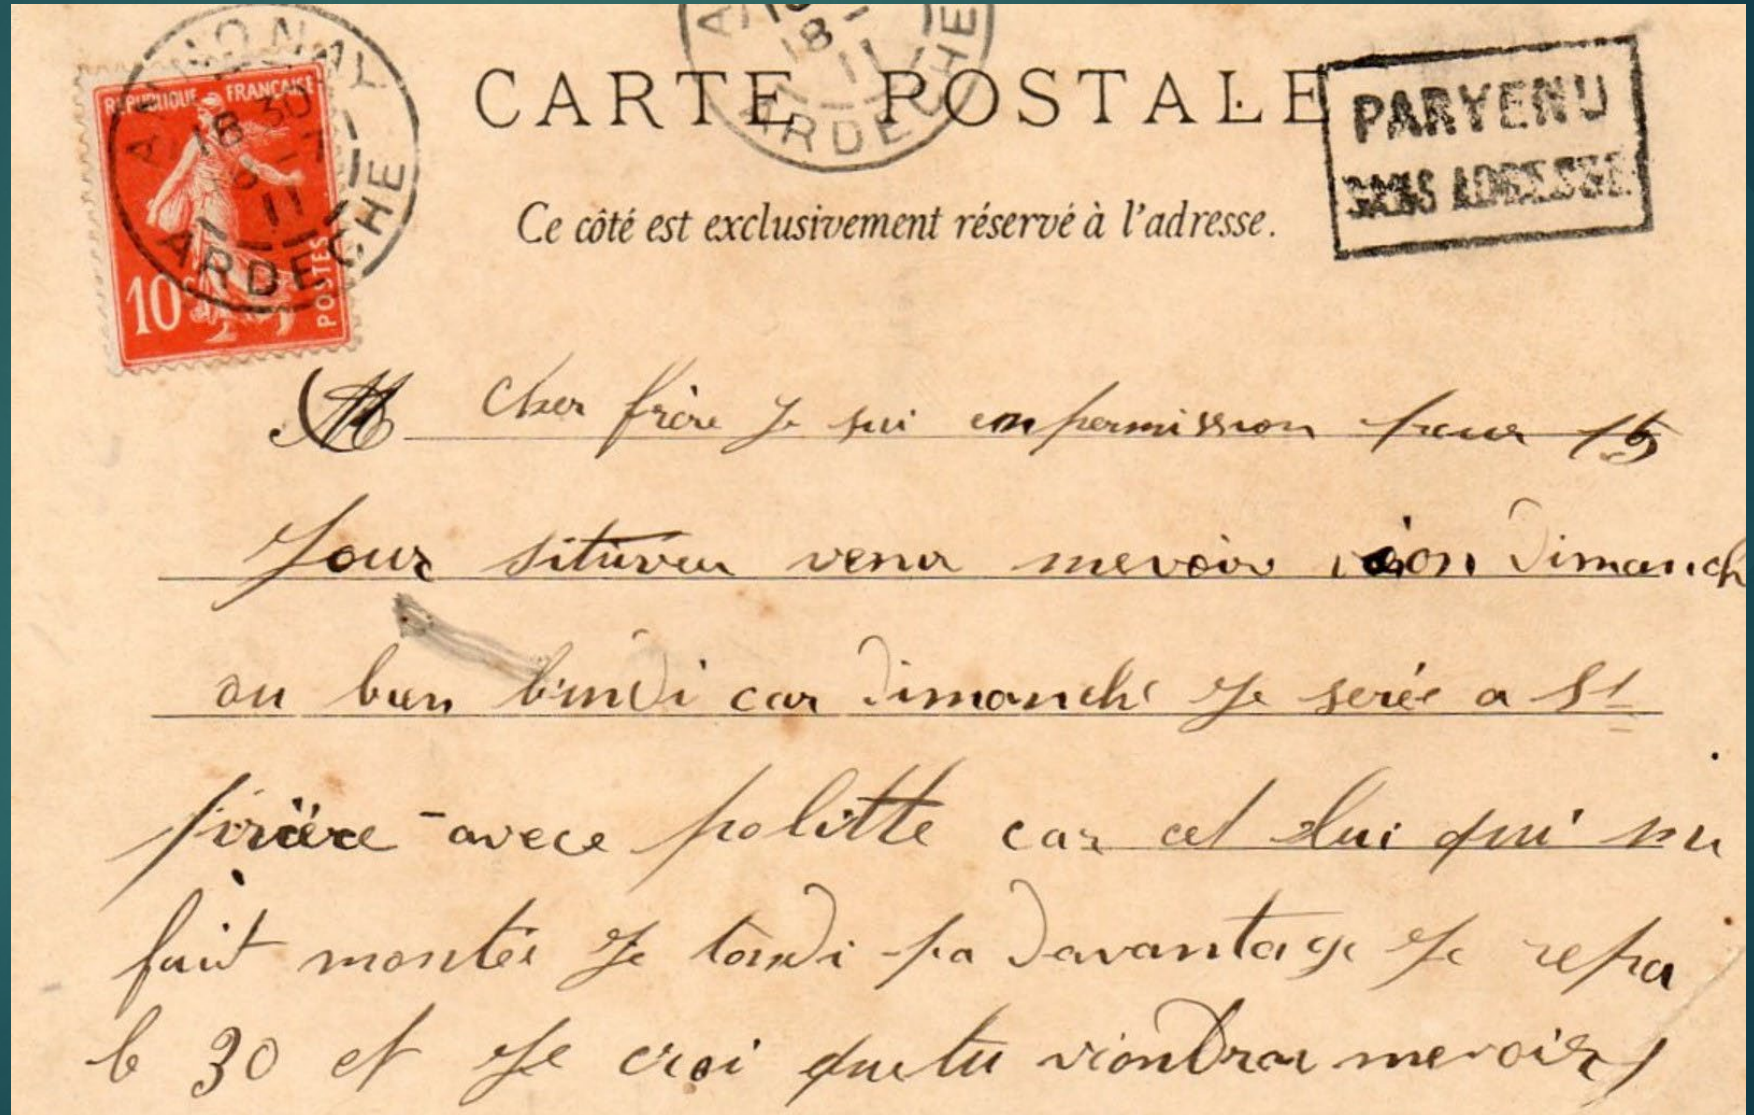 ANNONAY
18 30
18 - 7
11
ARDECHE
REPUBLIQUE FRANÇAISE
10c
POSTES
18 -
11
ARDECHE
CARTE POSTALE
PARVENU
SANS ADRESSE
Ce côté est exclusivement réservé à l'adresse.
M Cher frère Je sui en permission pour 15
Jour situveu venir mevoir vion Dimanch
ou bien lundi car Dimanche Je serée a St
pirière avece politte car cet lui qui mi
fait montér Je tandi pa Davantage Je repa
le 30 et Je croi quetu viondra mevoir